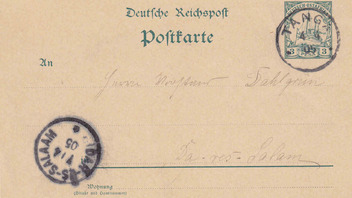 Deutsche Reichspost
Postkarte
TANGA
05
3 3
An
Herrn
Dahlgrün
Dar-es-Salam
DAR-ES-SALAAM
7/4
05
Wohnung
(Straße und Hausnummer)